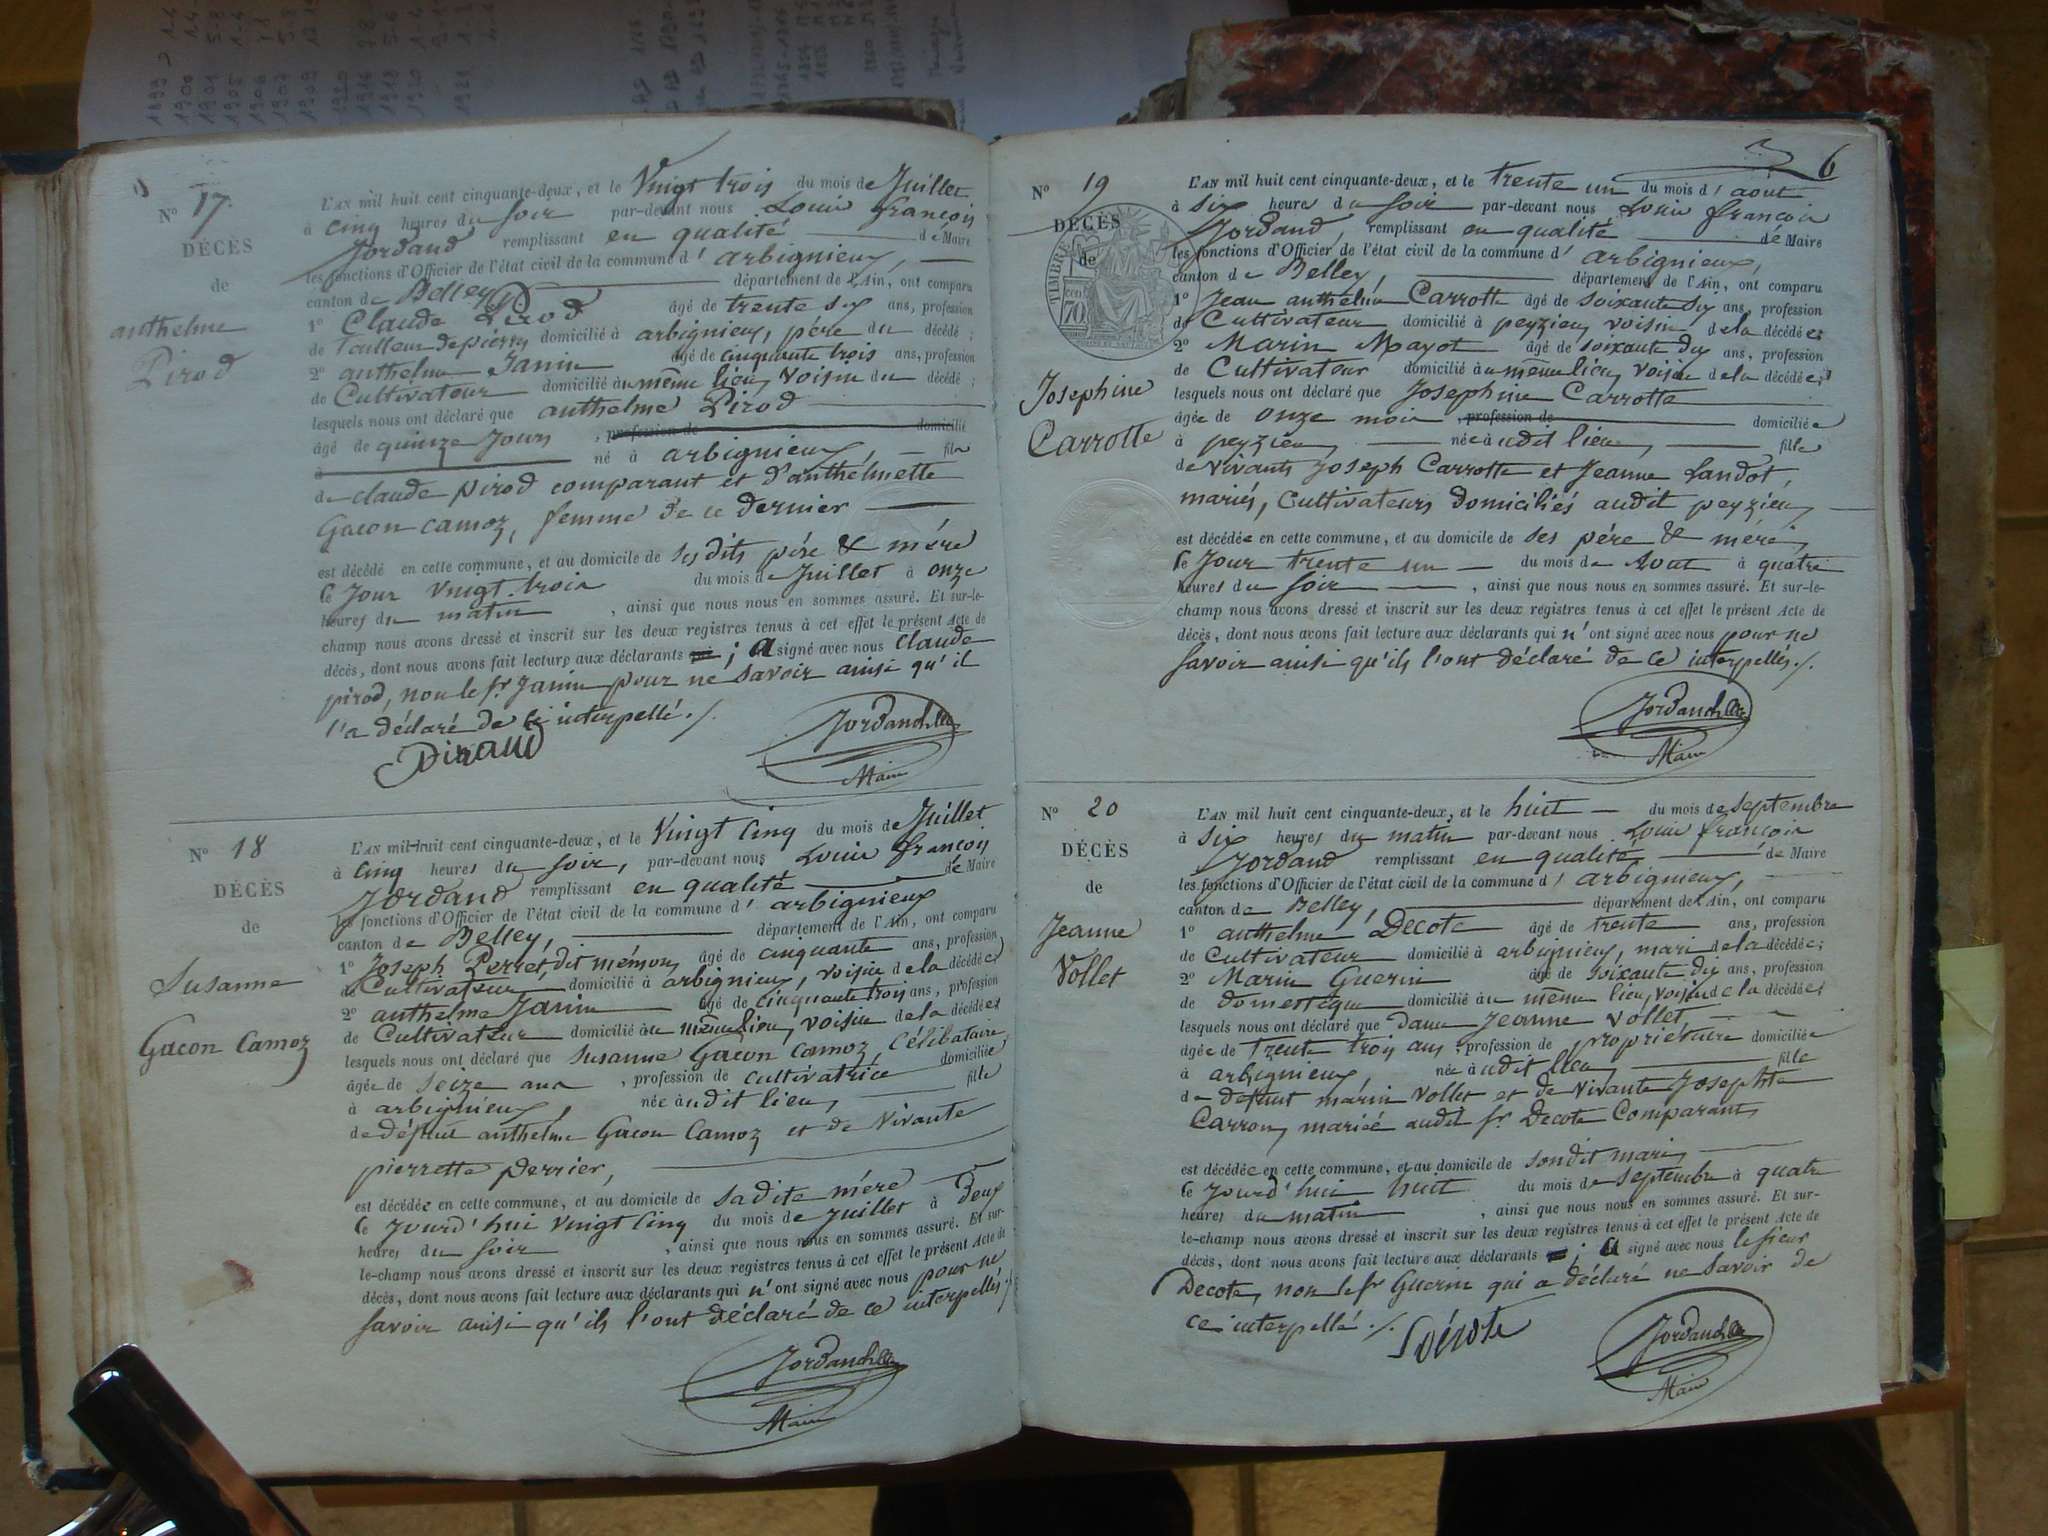 N° 17.
DÉCÈS
de
anthelme
Pirod
L'AN mil huit cent cinquante-deux, et le Vingt trois du mois de Juillet
à cinq heures du soir par-devant nous Louis françois
Jordand remplissant en qualité de Maire
les fonctions d'Officier de l'état civil de la commune d'arbignieux,
canton de Belley, département de l'Ain, ont comparu
1° Claude Pirod âgé de trente six ans, profession
de Tailleur de pierres domicilié à arbignieux, père du décédé ;
2° anthelme Janin âgé de cinquante trois ans, profession
de Cultivateur domicilié au même lieu, voisin du décédé ;
lesquels nous ont déclaré que anthelme Pirod
âgé de quinze Jours , profession de domicilié
à né à arbignieux, fils
de claude pirod comparant et d'anthelmette
Gacon camoz, femme de ce dernier
est décédé en cette commune, et au domicile de ses dits père & mère
le Jour vingt-trois du mois de Juillet à onze
heures du matin , ainsi que nous nous en sommes assuré. Et sur-le-
champ nous avons dressé et inscrit sur les deux registres tenus à cet effet le présent Acte de
décès, dont nous avons fait lecture aux déclarants ; a signé avec nous claude
pirod, non le sr Janin pour ne savoir ainsi qu'il
l'a déclaré de ce interpellé ./.
Piraud
Jordand
Maire
N° 18
DÉCÈS
de
Susanne
Gacon Camoz
L'AN mil huit cent cinquante-deux, et le Vingt cinq du mois de Juillet
à cinq heures du soir, par-devant nous Louis françois
Jordand remplissant en qualité de Maire
les fonctions d'Officier de l'état civil de la commune d'arbignieux
canton de Belley, département de l'Ain, ont comparu
1° Joseph Perret, dit mémoz, âgé de cinquante ans, profession
de Cultivateur domicilié à arbignieux, voisin de la décédée
2° anthelme Janin âgé de cinquante trois ans, profession
de Cultivateur domicilié au même lieu, voisin de la décédée
lesquels nous ont déclaré que susanne Gacon camoz, Célibataire,
âgée de seize ans , profession de cultivatrice domiciliée
à arbignieux, née audit lieu, fille
de défunt anthelme Gacon Camoz et de vivante
pierrette perrier,
est décédée en cette commune, et au domicile de sadite mère
le Jourd'hui vingt cinq du mois de juillet à deux
heures du soir , ainsi que nous nous en sommes assuré. Et sur-
le-champ nous avons dressé et inscrit sur les deux registres tenus à cet effet le présent Acte de
décès, dont nous avons fait lecture aux déclarants qui n'ont signé avec nous pour ne
savoir ainsi qu'ils l'ont déclaré de ce interpellés ./.
Jordand
Maire
6
N° 19
DÉCÈS
de
TIMBRE
70
Josephine
Carrotte
L'AN mil huit cent cinquante-deux, et le trente un du mois d'août
à six heures du soir par-devant nous Louis françois
Jordand, remplissant en qualité de Maire
les fonctions d'Officier de l'état civil de la commune d'arbignieux,
canton de Belley, département de l'Ain, ont comparu
1° Jean anthelme Carrotte âgé de soixante six ans, profession
de Cultivateur domicilié à peyzieu, voisin de la décédée ;
2° Marin Mayot âgé de soixante dix ans, profession
de Cultivateur domicilié au même lieu, voisin de la décédée ;
lesquels nous ont déclaré que Josephine Carrotte
âgée de onze mois , profession de domiciliée
à peyzieu, née audit lieu, fille
de vivants Joseph Carrotte et Jeanne Landot,
mariés, Cultivateurs domiciliés audit peyzieu,
est décédée en cette commune, et au domicile de ses père & mère,
le Jour trente un du mois de Aout à quatre
heures du soir , ainsi que nous nous en sommes assuré. Et sur-le-
champ nous avons dressé et inscrit sur les deux registres tenus à cet effet le présent Acte de
décès, dont nous avons fait lecture aux déclarants qui n'ont signé avec nous pour ne
savoir ainsi qu'ils l'ont déclaré de ce interpellés ./.
Jordand
Maire
N° 20
DÉCÈS
de
Jeanne
Vollet
L'AN mil huit cent cinquante-deux, et le huit du mois de septembre
à six heures du matin par-devant nous Louis françois
Jordand remplissant en qualité de Maire
les fonctions d'Officier de l'état civil de la commune d'arbignieux,
canton de Belley, département de l'Ain, ont comparu
1° anthelme Decote âgé de trente ans, profession
de Cultivateur domicilié à arbignieux, mari de la décédée ;
2° Marin Guerin âgé de soixante dix ans, profession
de domestique domicilié au même lieu, voisin de la décédée ;
lesquels nous ont déclaré que dame Jeanne Vollet
âgée de Trente trois ans , profession de propriétaire domiciliée
à arbignieux, née audit lieu, fille
de défunt marin Vollet et de vivante Josephte
Carron, mariée audit sr Decote Comparant,
est décédée en cette commune, et au domicile de sondit mari,
le Jourd'hui huit du mois de septembre à quatre
heures du matin , ainsi que nous nous en sommes assuré. Et sur-
le-champ nous avons dressé et inscrit sur les deux registres tenus à cet effet le présent Acte de
décès, dont nous avons fait lecture aux déclarants ; a signé avec nous le sieur
Decote, non le sr Guerin qui a déclaré ne savoir de
ce interpellé ./.
Décote
Jordand
Maire